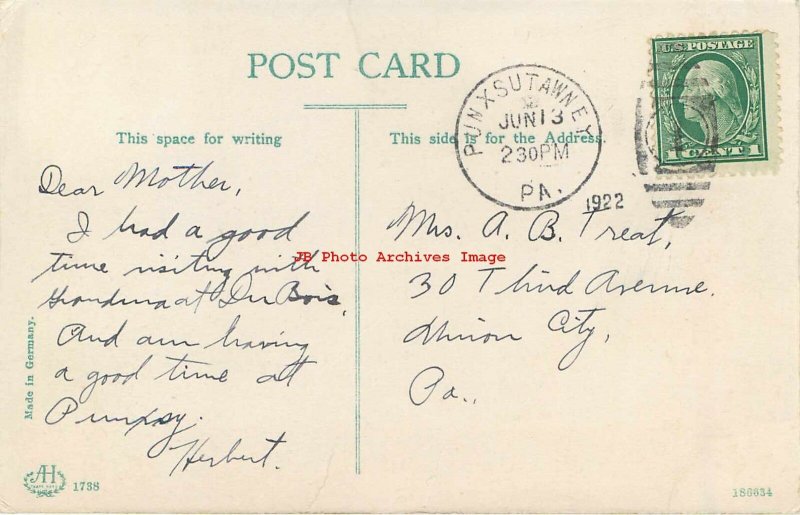 POST CARD
This space for writing
This side is for the Address.
PUNXSUTAWNEY
JUN 13
2 30 PM
PA.
1922
U.S. POSTAGE
1 CENT 1
Dear Mother,
I had a good
time visiting with
Grandma at Du Bois,
And am having
a good time at
Punxsy.
Herbert.
Mrs. A. B. Treat,
30 Third Avenue.
Union City,
Pa.,
JB Photo Archives Image
Made in Germany.
AH
1738
186634